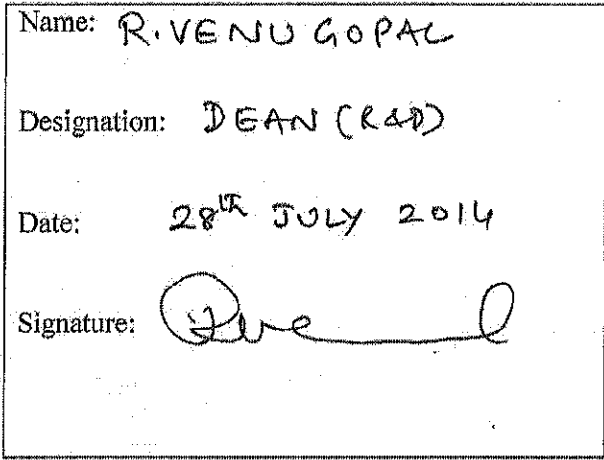 Name: R. VENUGOPAL
Designation: DEAN (R&D)
Date: 28th JULY 2014
Signature: